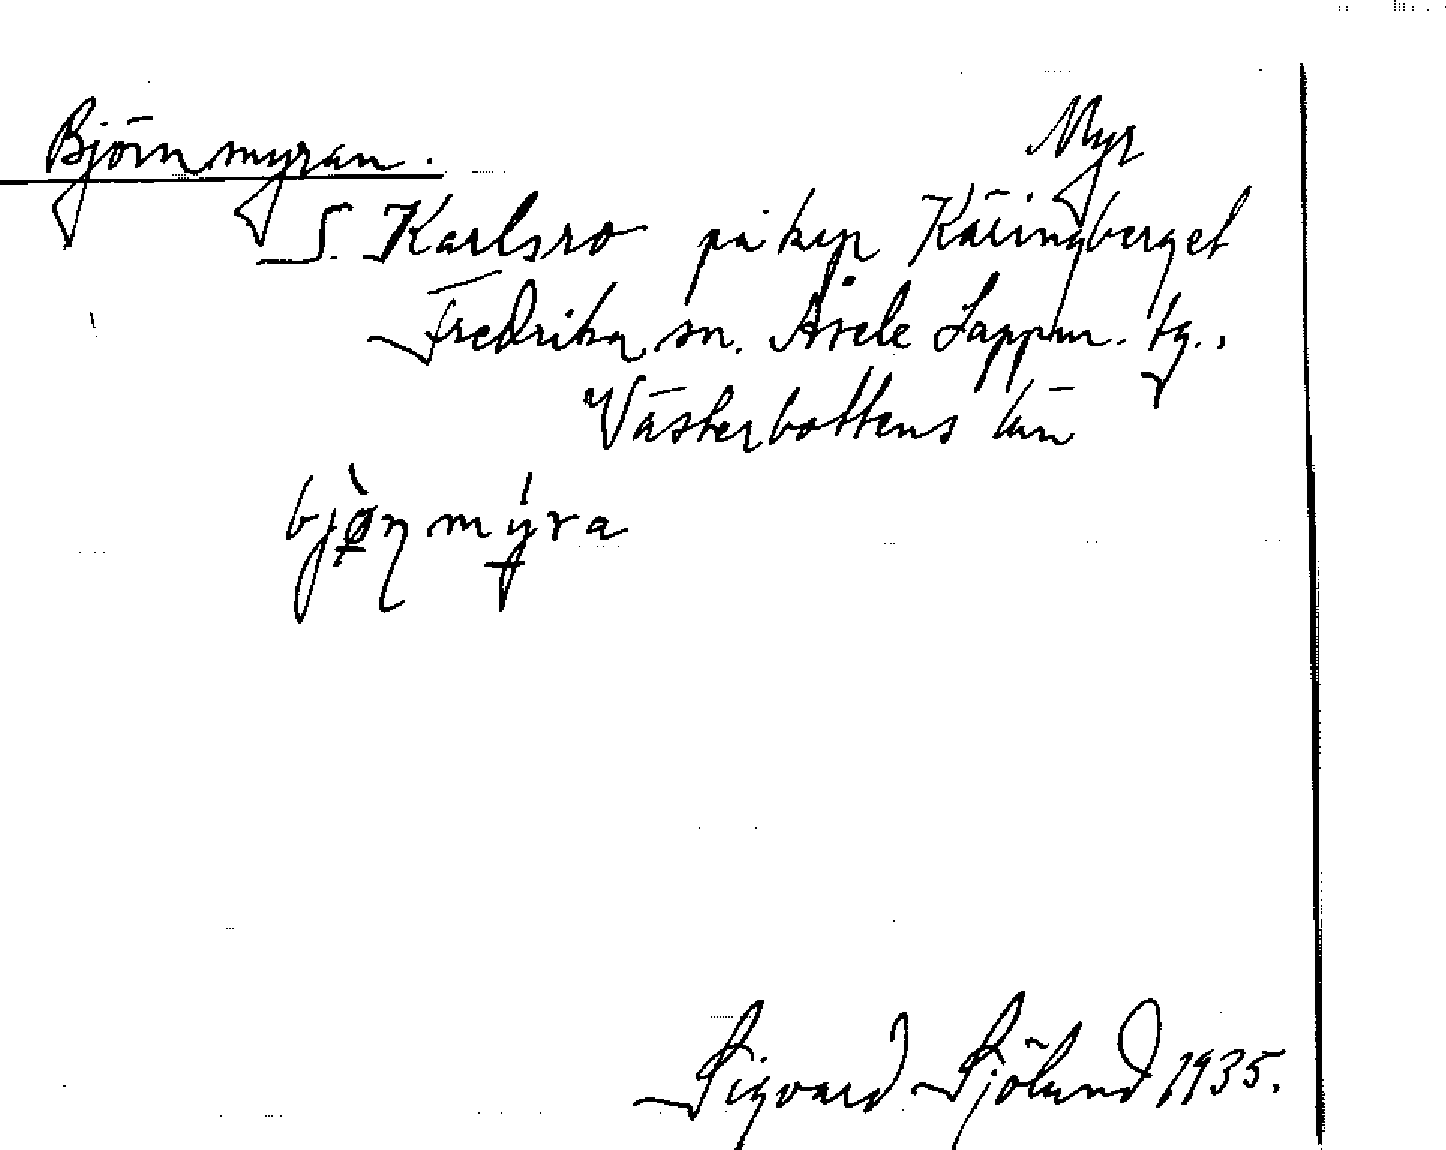 Björnmyran. Myr
S. Karlsro på kyp Käringberget
Fredrika sn. Åsele Lappm. tg.,
Västerbottens län
bjø̀ṇmýra
Sigvard Sjölund 1935.